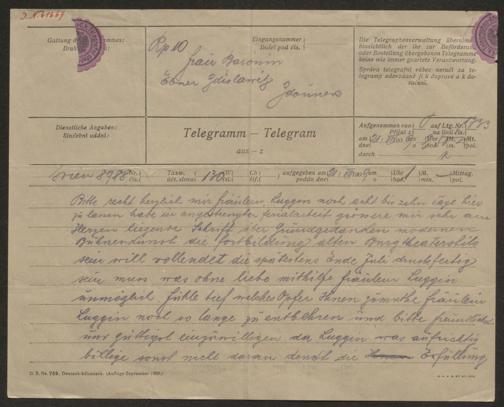 Gattung des Telegrammes:
Rp 10
Eingangsnummer:
Došel pod čís.
Die Telegraphenverwaltung übernimmt
hinsichtlich der ihr zur Beförderung
oder Bestellung übergebenen Telegramme
keine wie immer geartete Verantwortung.
Správa telegrafní vůbec neručí za te-
legramy odevzdané jí k dopravě a k do-
ručení.
frau Baronin
Ebner
Dienstliche Angaben:
Služební udání:
Telegramm – Telegram
aus – z
Aufgenommen von
auf Ltg. Nr.
Přijal z
na lin. čís.
am
durch
wien
Taxw.
130
aufgegeben am
podán dne
Uhr
hod.
M.
min.
Mittag.
pol.
Bitte recht herzlich mir fräulein Luggin noch acht bis zehn tage hier
zu lassen habe in angestrengter ferialarbeit grössere mir sehr am
Herzen liegende Schrift über Grundgedanken moderner
Bühnenkunst die fortbildung alten Burgtheaterstils
sein will vollendet die spätestens Ende Juli druckfertig
sein muss was ohne liebe mithilfe fräulein Luggin
unmöglich fühle tief welches Opfer Ihnen zumuthe fräulein
Luggin noch so lange zu entbehren und bitte
nur gütigst einzuwilligen da Luggin was aufrichtig
billige sonst nicht daran denkt die Erfüllung
D. S. Nr. 769. Deutsch-böhmisch. (Auflage September 1909.)